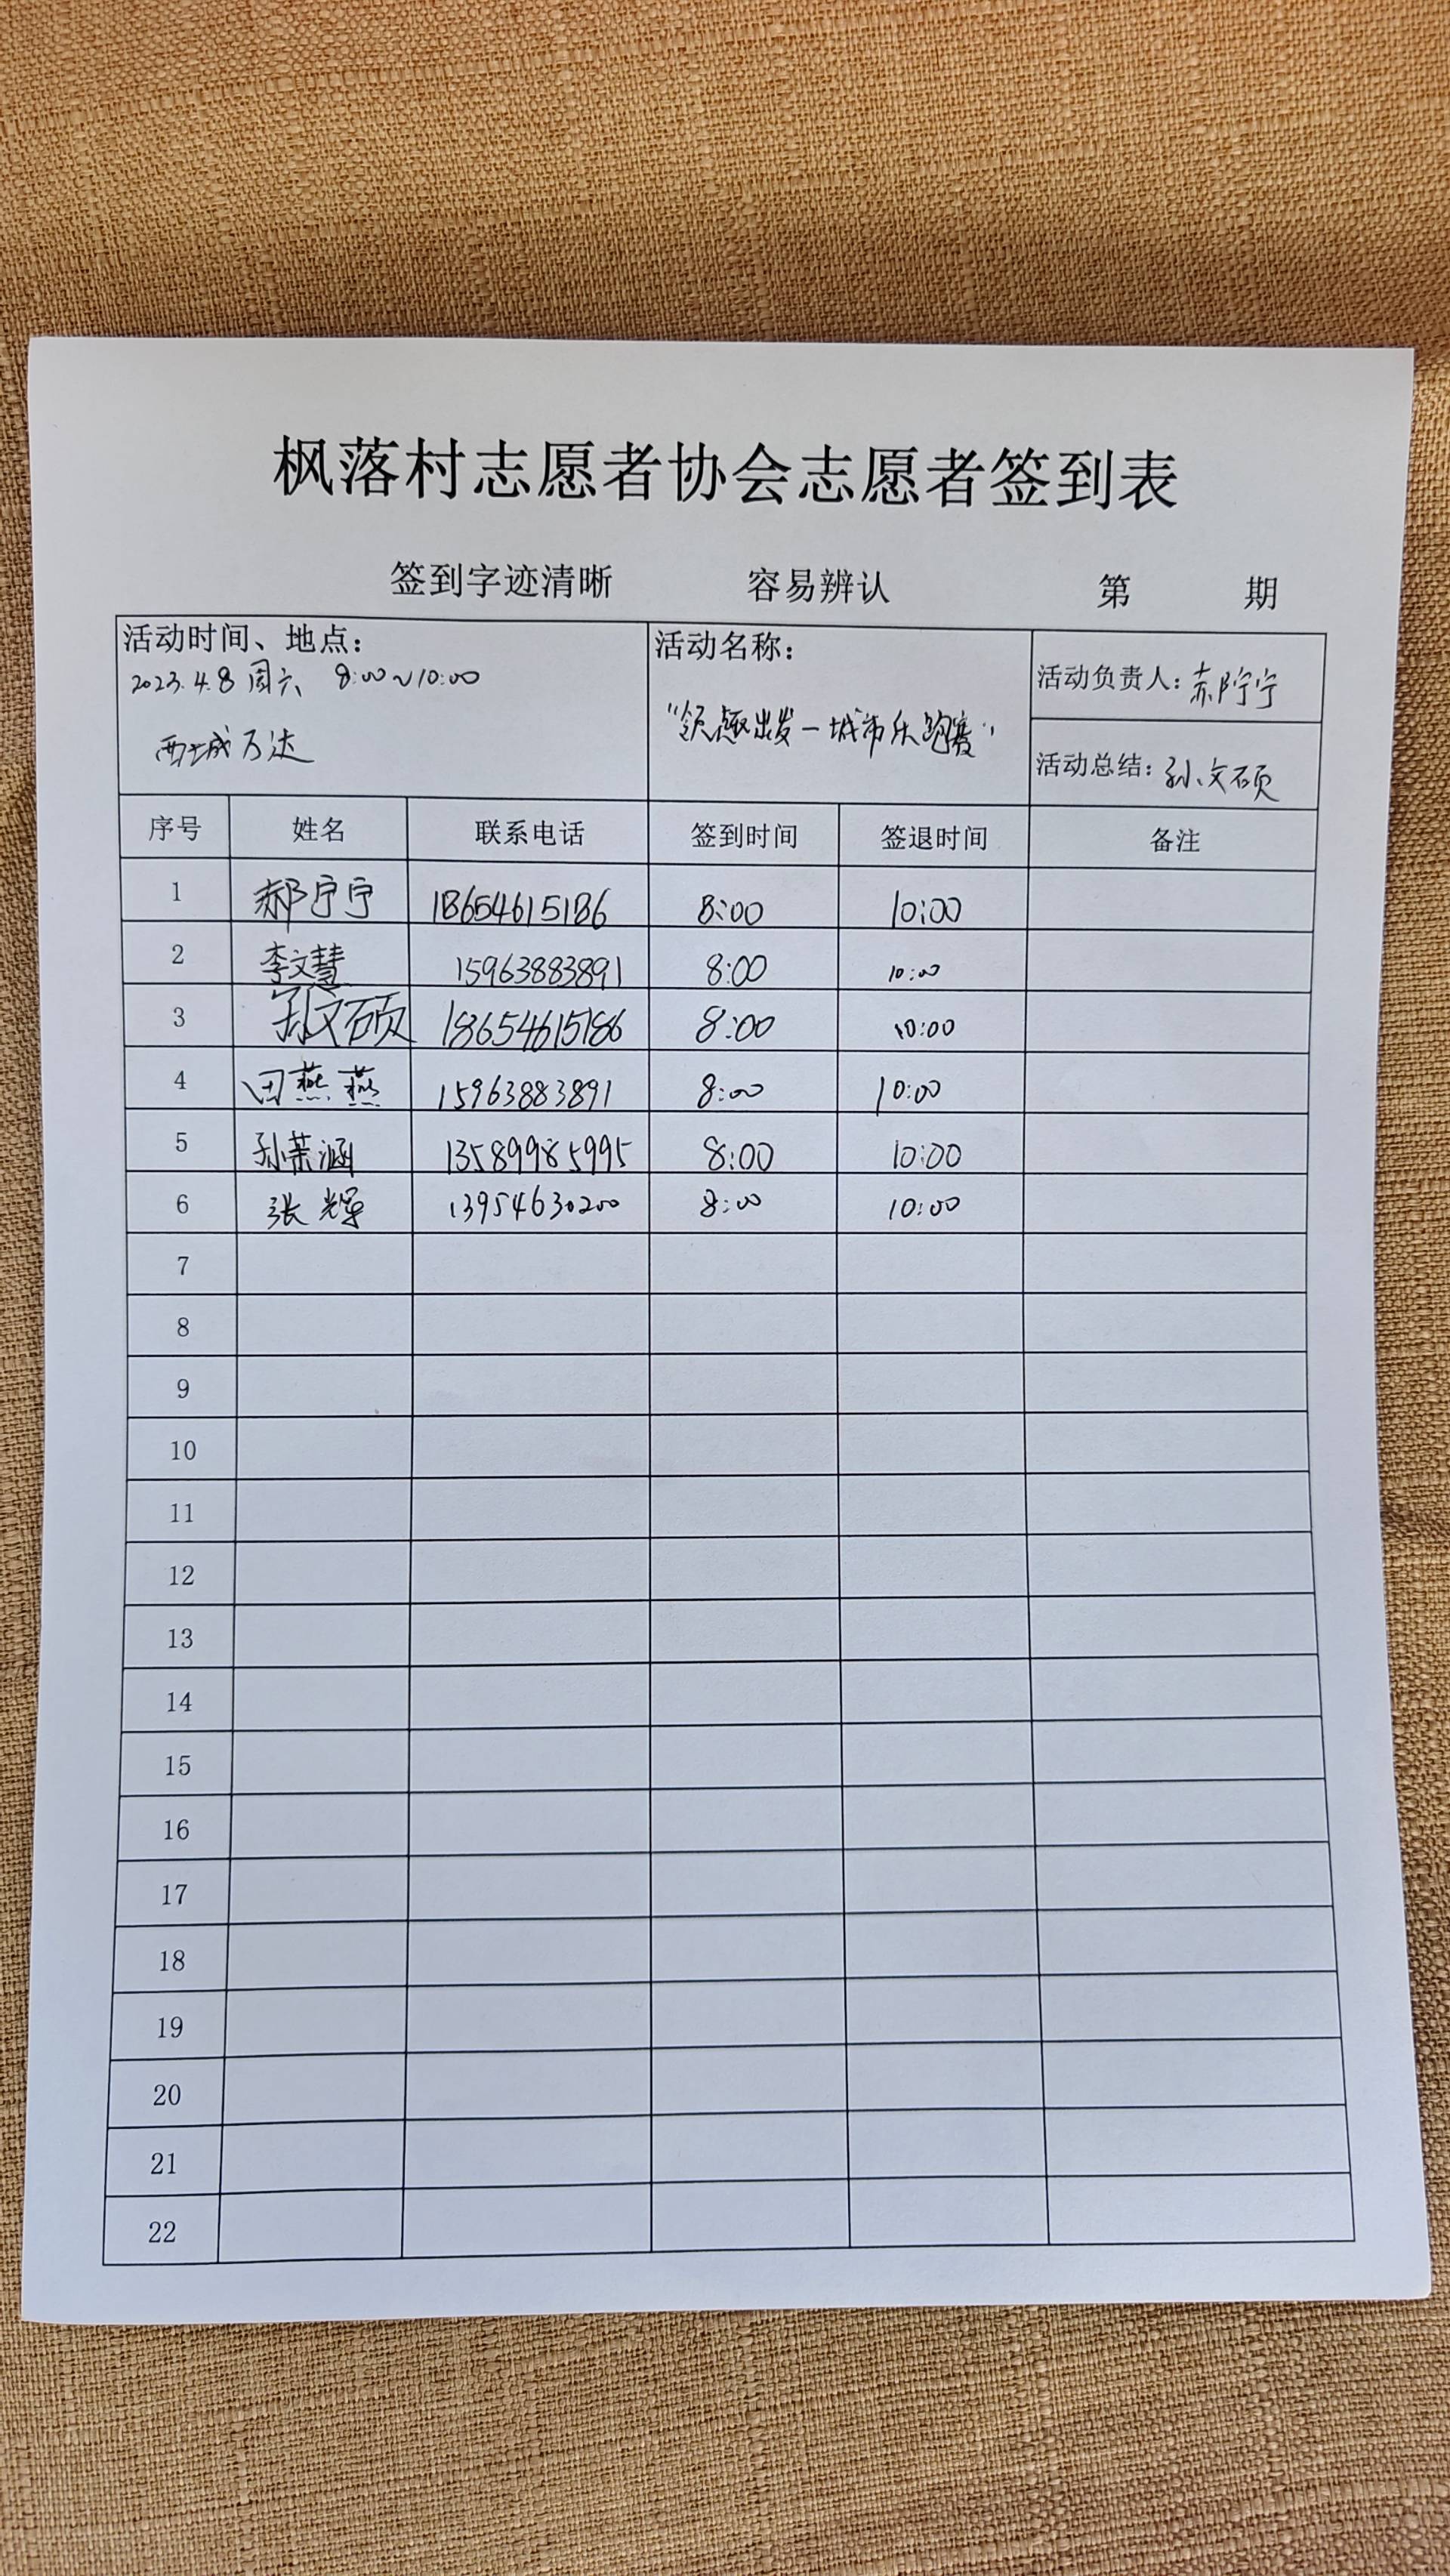 枫落村志愿者协会志愿者签到表
签到字迹清晰 容易辨认 第 期
活动时间、地点：
2023.4.8 周六 8:00~10:00
西城万达
活动名称：
“领趣出发—城市乐跑赛”
活动负责人：郝宁宁
活动总结：孙文硕
序号 姓名 联系电话 签到时间 签退时间 备注
1 郝宁宁 18654615186 8:00 10:00
2 李文慧 15963883891 8:00 10:00
3 孙文硕 18654615186 8:00 10:00
4 田燕燕 15963883891 8:00 10:00
5 孙萊涵 13589985995 8:00 10:00
6 张辉 13954630200 8:00 10:00
7
8
9
10
11
12
13
14
15
16
17
18
19
20
21
22